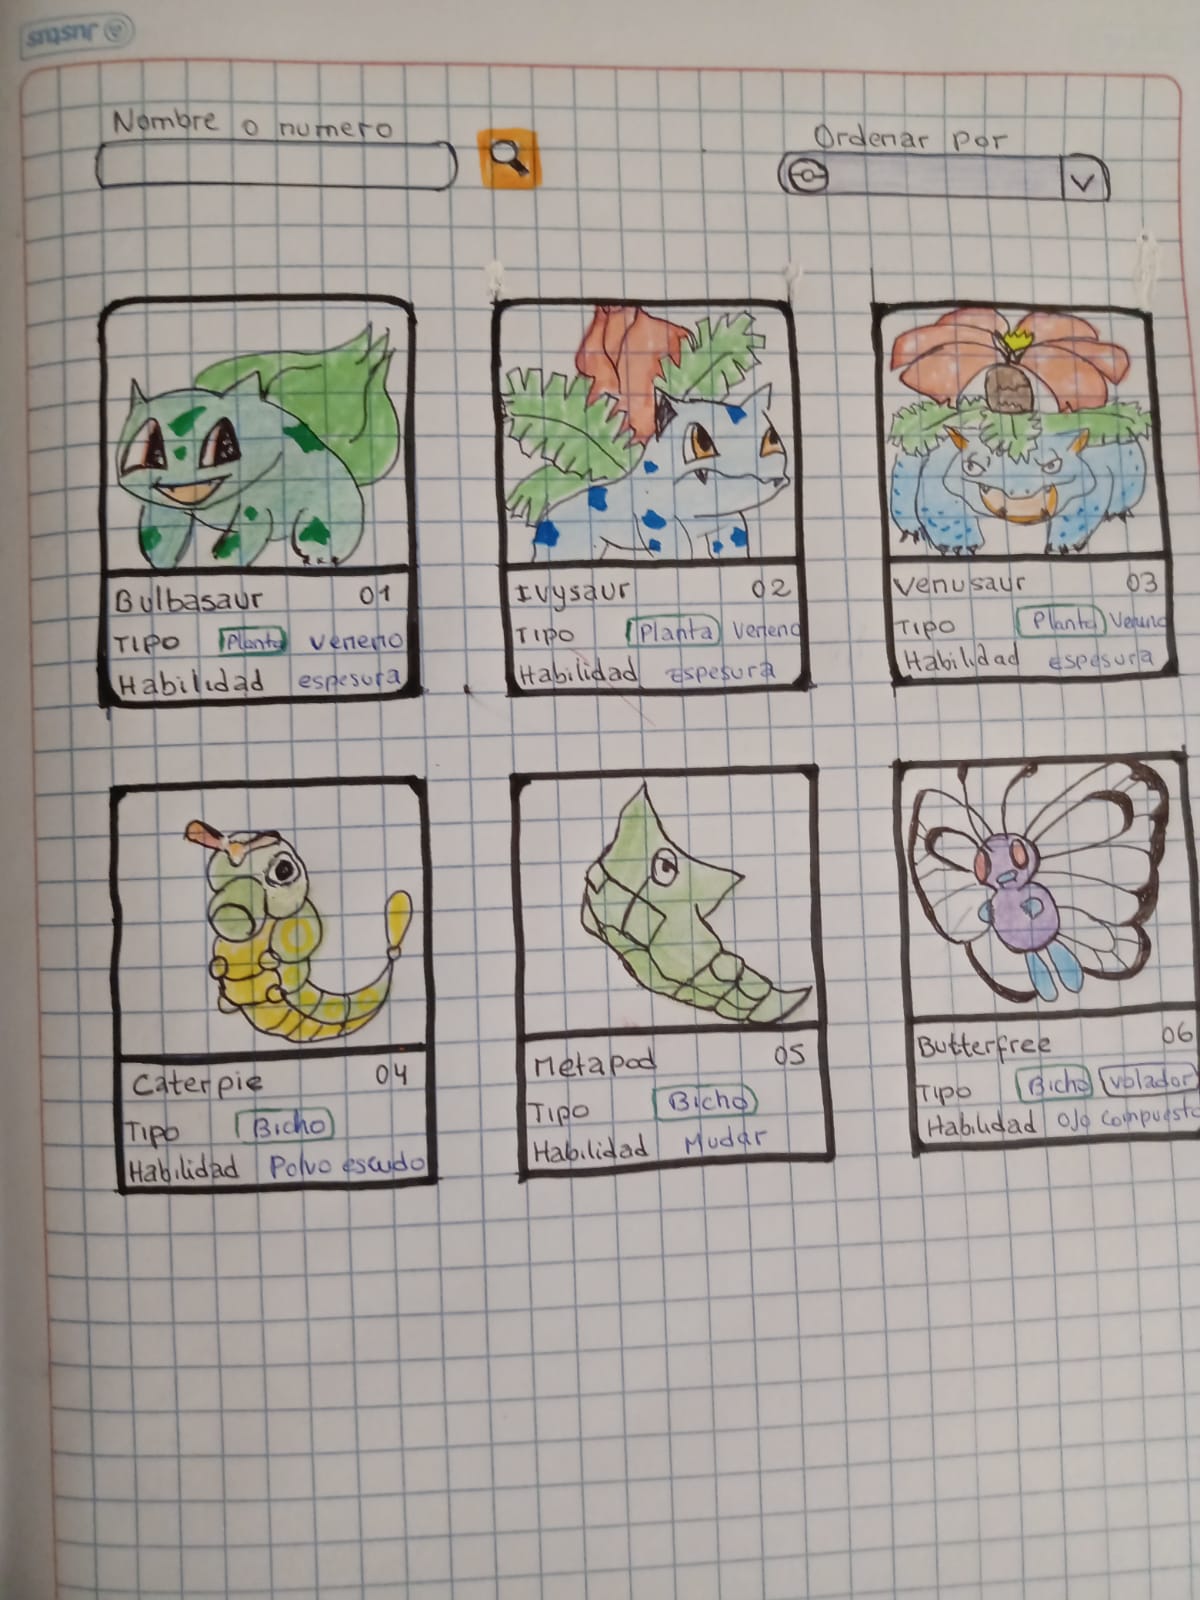 Justus
Nombre o numero
Ordenar por
Bulbasaur 01
TIPO Planta veneno
Habilidad espesura
Ivysaur 02
TIPO Planta veneno
Habilidad Espesura
Venusaur 03
TIPO Planta Veneno
Habilidad espesura
Caterpie 04
TIPO Bicho
Habilidad Polvo escudo
Metapod 05
TIPO Bicho
Habilidad Mudar
Butterfree 06
TIPO Bicho volador
Habilidad Ojo compuesto